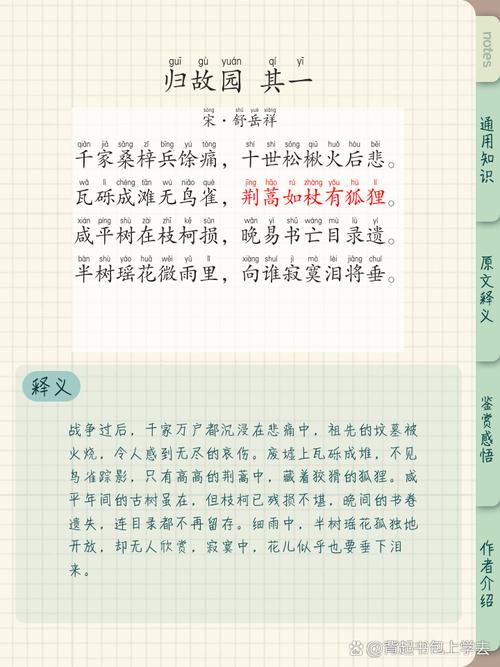 notes
guī gù yuán qí yī
归故园 其一
sòng shū yuè xiáng
宋·舒岳祥
qiān jiā sāng zǐ bīng yú tòng shí shì sōng qiū huǒ hòu bēi
千家桑梓兵馀痛，十世松楸火后悲。
wǎ lì chéng tān wú niǎo què jīng hāo rú zhàng yǒu hú lí
瓦砾成滩无鸟雀，荆蒿如杖有狐狸。
xián píng shù zài zhī kē sǔn wǎn yì shū wáng mù lù yí
咸平树在枝柯损，晚易书亡目录遗。
bàn shù yáo huā wēi yǔ lǐ xiàng shuí jì mò lèi jiāng chuí
半树瑶花微雨里，向谁寂寞泪将垂。
释义
战争过后，千家万户都沉浸在悲痛中，祖先的坟墓被
火烧，令人感到无尽的哀伤。废墟上瓦砾成堆，不见
鸟雀踪影，只有高高的荆蒿中，藏着狡猾的狐狸。咸
平年间的古树虽在，但枝柯已残损不堪，晚间的书卷
遗失，连目录都不再留存。细雨中，半树瑶花孤独地
开放，却无人欣赏，寂寞中，花儿似乎也要垂下泪
来。
通用知识
原文释义
鉴赏感悟
作者介绍
@背起书包上学去